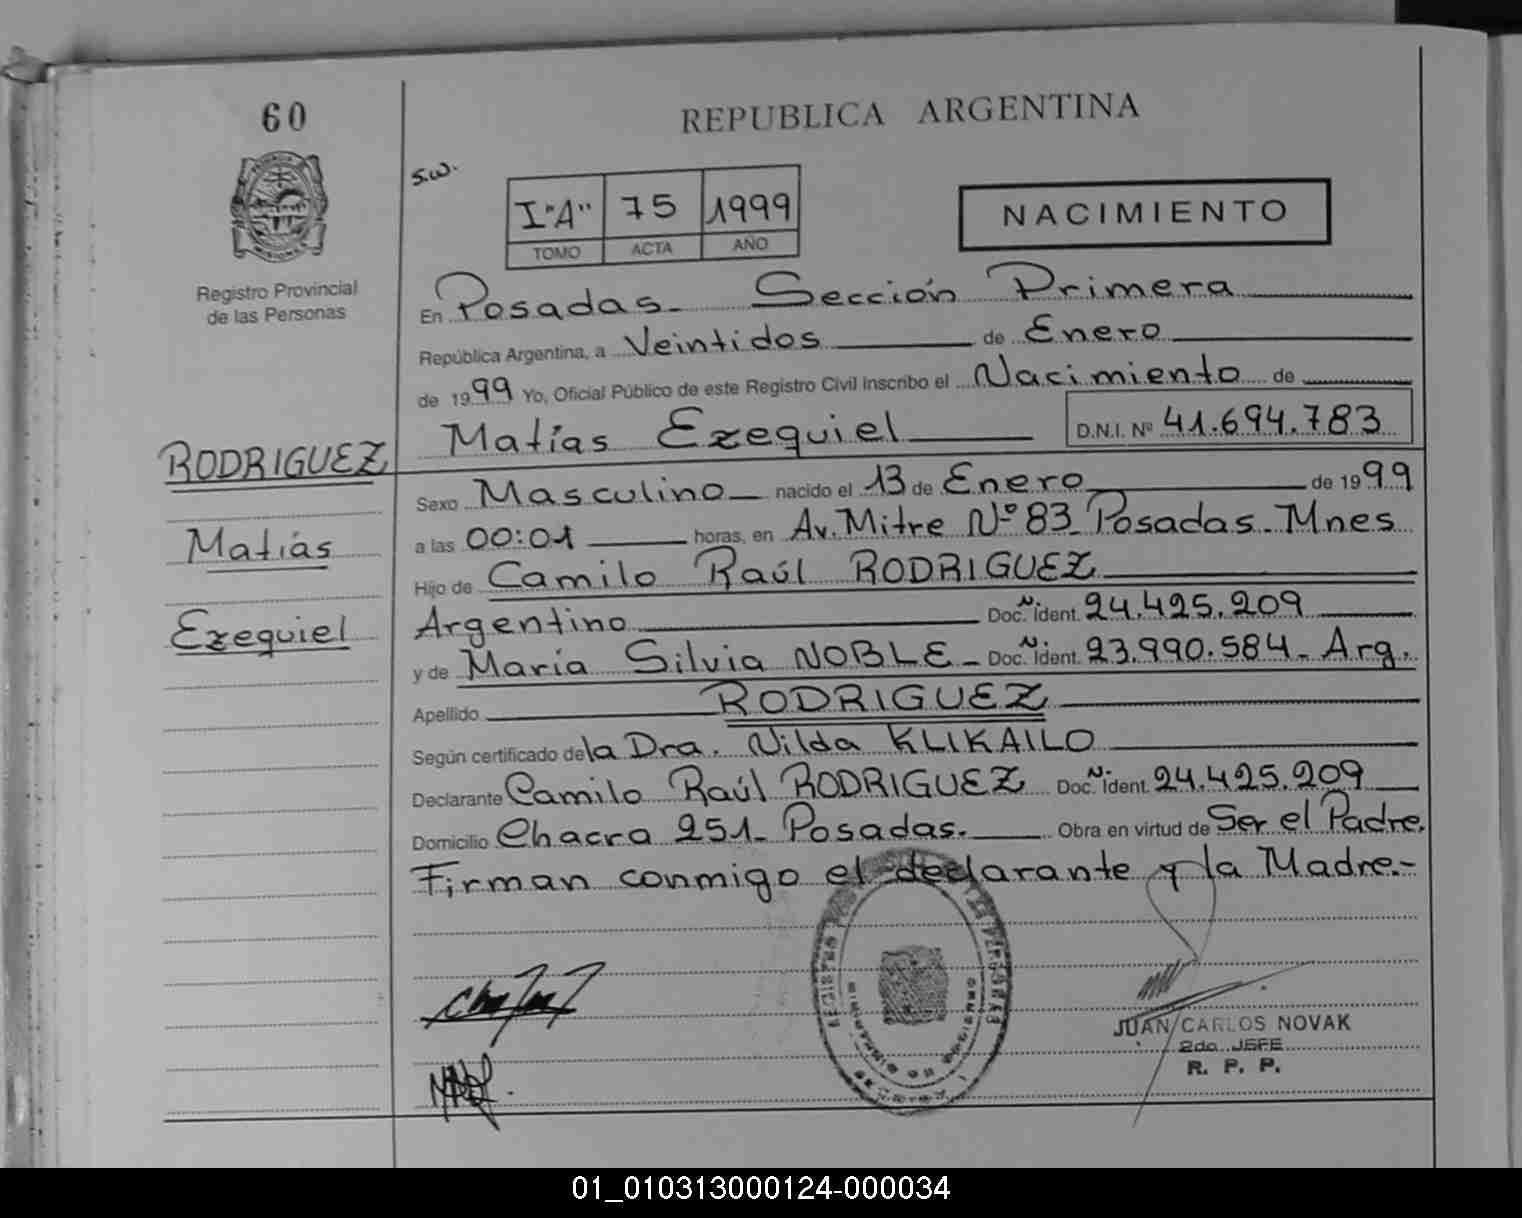 60
REPUBLICA ARGENTINA
s.w.
I "A" 75 1999
TOMO ACTA AÑO
NACIMIENTO
Registro Provincial
de las Personas
En Posadas - Sección Primera
República Argentina, a Veintidos de Enero
de 1999 Yo, Oficial Público de este Registro Civil inscribo el Nacimiento de
Matías Ezequiel D.N.I. Nº 41.694.783
RODRIGUEZ
Matías
Ezequiel
Sexo Masculino nacido el 13 de Enero de 1999
a las 00:01 horas, en Av. Mitre Nº 83 - Posadas - Mnes
Hijo de Camilo Raúl RODRIGUEZ
Argentino Doc. N. Ident. 24.425.209
y de María Silvia NOBLE - Doc. N. Ident. 23.990.584 - Arg.
Apellido RODRIGUEZ
Según certificado de la Dra. Nilda KLIKAILO
Declarante Camilo Raúl RODRIGUEZ Doc. N. Ident. 24.425.209
Domicilio Chacra 251 - Posadas. Obra en virtud de Ser el Padre.
Firman conmigo el declarante y la Madre.-
JUAN CARLOS NOVAK
2do JEFE
R. P. P.
01_010313000124-000034